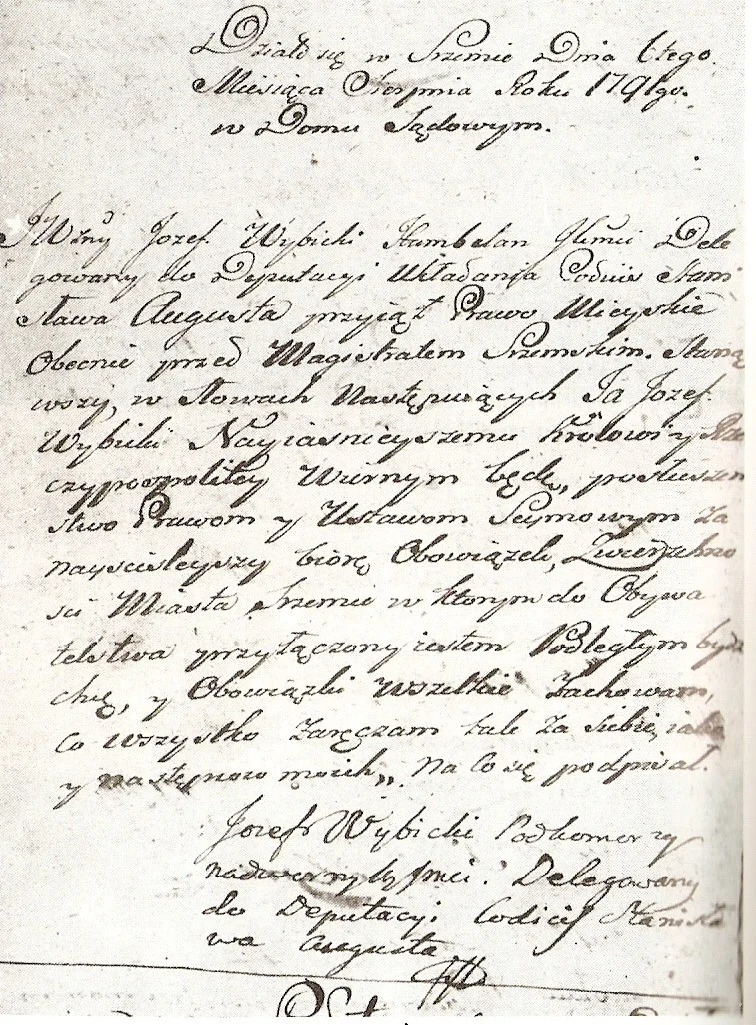 Działo się w Srzemie Dnia 6tego
Miesiąca Sierpnia Roku 1791go.
w Domu Sądowym.
JWżny Jozef Wybicki Szambelan JKMci Dele
gowany do Deputacyi Układania Codicis Stani
sława Augusta przyiął Prawo Mieyskie
Obecnie przed Magistratem Srzemskim. Staną
wszy, w słowach Następuiących Ja Jozef
Wybicki Nayiasnieyszemu Krolowi y Rze
czypospolitey Wiernym będę, posłuszen
stwo Prawom y Ustawom Seymowym za
nayscisleyszy biorę Obowiązek, Zwierzchno
sci Miasta Srzemu w ktorym do Obywa
telstwa przyłączony iestem Podległym bydz
chcę, y Obowiązki wszelkie Zachowam,
co wszystko zaręczam tak za siebie, iako
y następcow moich„ Na co się podpisał.
Jozef Wybicki Podkomorzy
nadworny JKMci. Delegowany
do Deputacyi Codicis Stanisła
wa Augusta